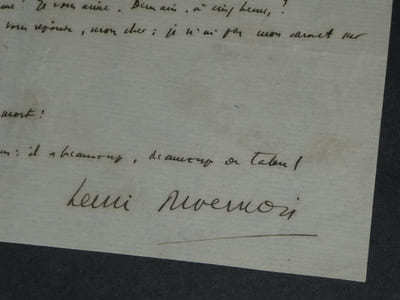 ! Je vous aime. Demain, à cinq heures,?
vous rejoins, mon cher: je n'ai pas mon carnet sur
mort!
: il a beaucoup, beaucoup de talent
Henri Duvernois